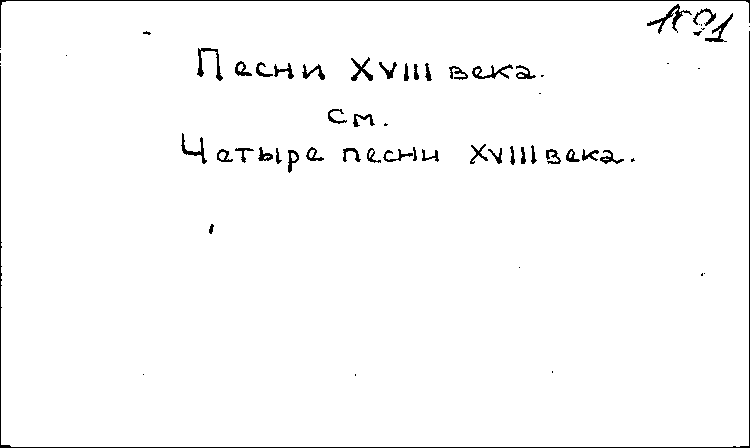 Песни XVIII века.
см.
Четыре песни XVIII века.